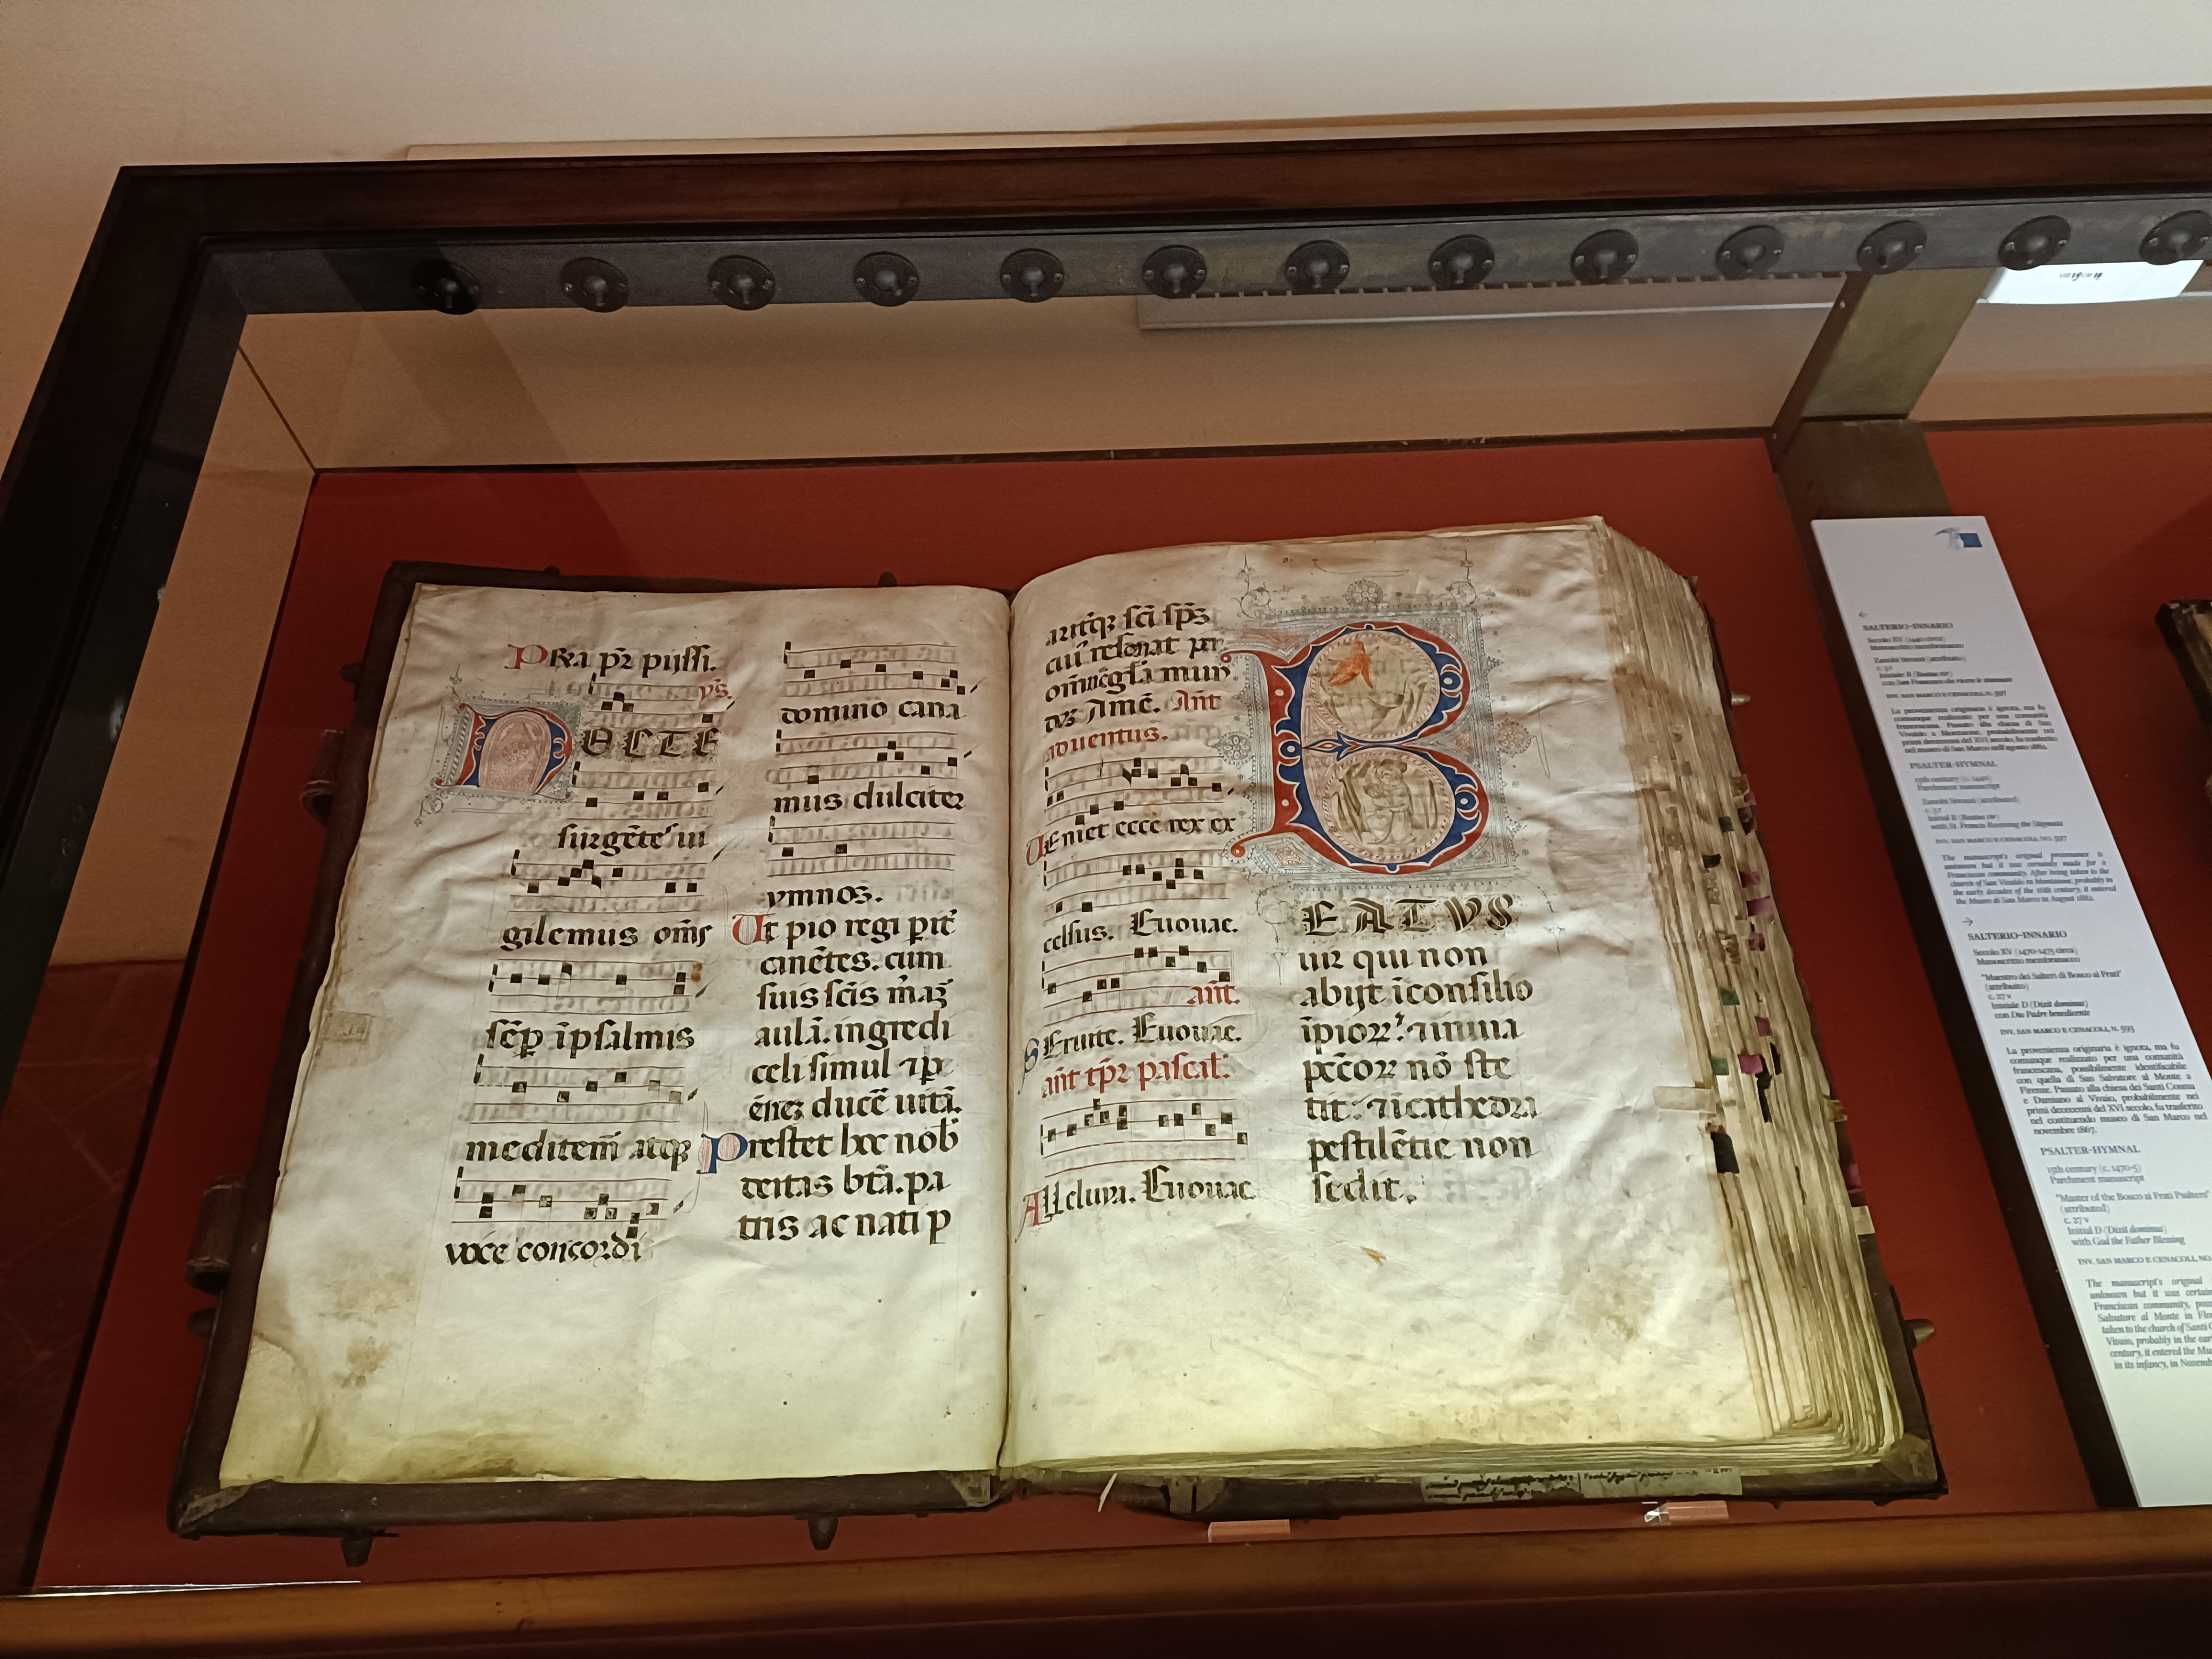 Prea pr̄ pijssi.
ps.
NOCTE
surgētes ui
gilemus om̄s
sēp īpsalmis
meditem̄ atqꝫ
voce concordi
domino cana
mus dulciter
ymnos.
Ut pio regi parit̄
canētes. cum
suis scīs
aulā. ingredi
celi simul
ducē uitā.
Prestet hoc nob̄
deitas btā. pa
tris ac nati p
aritqꝫ scī sps̄
cui resonat per
dus Amē. Ant
aduentus.
Ueniet ecce rex ex
celsus. Euouae.
ant.
Seruite. Euouae.
ant tpr̄ pascal.
Alleluia. Euouae
BEATVS
uir qui non
abijt īconsilio
īpiorꝝ ⁊ in uia
pec̄corꝝ nō ste
tit: ⁊ ī cathedra
pestilētie non
sedit.
SALTERIO-INNARIO
Secolo XV (1440 circa)
Manoscritto membranaceo
Zanobi Strozzi (attribuito)
c. 3 r
Iniziale B (Beatus vir)
con San Francesco che riceve le stimmate
INV. SAN MARCO E CENACOLI, N. 597
La provenienza originaria è ignota, ma fu
comunque realizzato per una comunità
francescana. Passato alla chiesa di San
Vivaldo a Montaione, probabilmente nei
primi decenni del XVI secolo, fu trasferito
nel museo di San Marco nell'agosto 1882.
PSALTER-HYMNAL
15th century (c. 1440)
Parchment manuscript
Zanobi Strozzi (attributed)
c. 3 r
Initial B (Beatus vir)
with St. Francis Receiving the Stigmata
INV. SAN MARCO E CENACOLI, NO. 597
The manuscript's original provenance is
unknown but it was certainly made for a
Franciscan community. After being taken to the
church of San Vivaldo in Montaione, probably in
the early decades of the 16th century, it entered
the Museo di San Marco in August 1882.
SALTERIO-INNARIO
Secolo XV (1470-1475 circa)
Manoscritto membranaceo
"Maestro dei Salteri di Bosco ai Frati"
(attribuito)
c. 27 v
Iniziale D (Dixit dominus)
con Dio Padre benedicente
INV. SAN MARCO E CENACOLI, N. 593
La provenienza originaria è ignota, ma fu
comunque realizzato per una comunità
francescana, possibilmente identificabile
con quella di San Salvatore al Monte a
Firenze. Passato alla chiesa dei Santi Cosma
e Damiano al Vivaio, probabilmente nei
primi decenni del XVI secolo, fu trasferito
nel costituendo museo di San Marco nel
novembre 1867.
PSALTER-HYMNAL
15th century (c. 1470-5)
Parchment manuscript
"Master of the Bosco ai Frati Psalters"
(attributed)
c. 27 v
Initial D (Dixit dominus)
with God the Father Blessing
INV. SAN MARCO E CENACOLI, NO.
The manuscript's original
unknown but it was
Franciscan community,
Salvatore al Monte in
taken to the church of Santi
Vivaio, probably in the
century, it entered the
in its infancy, in